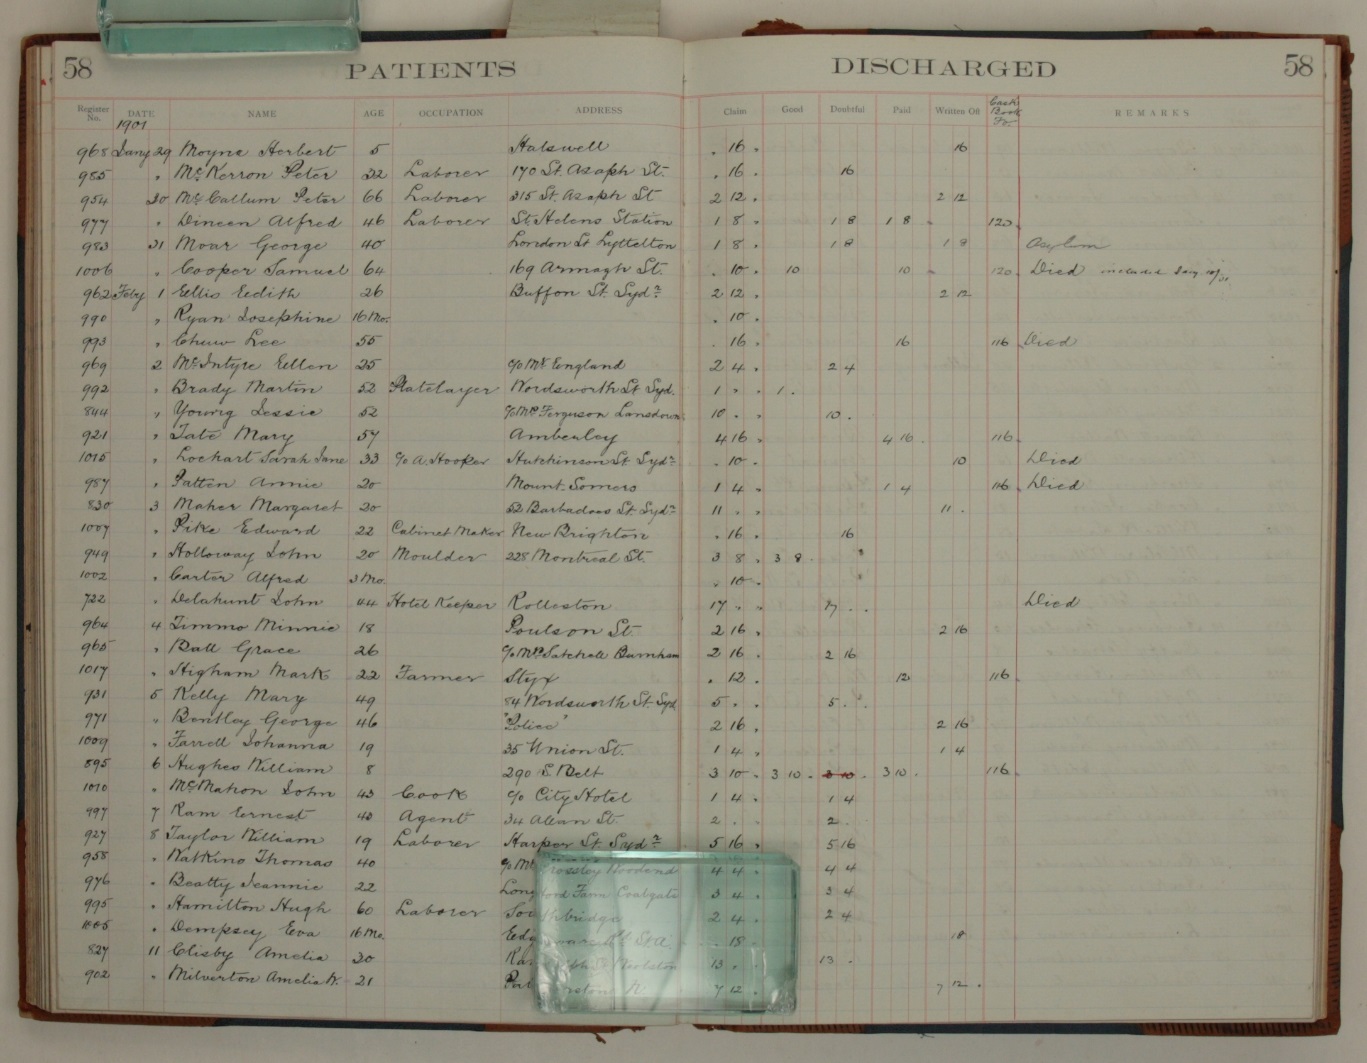 58 PATIENTS DISCHARGED 58
Register No. DATE NAME AGE OCCUPATION ADDRESS Claim Good Doubtful Paid Written Off Cash Book Fo REMARKS
1901
968 Jany 29 Moyne Herbert 5 Halswell . 16 . 16
985 " McKerron Peter 22 Laborer 170 St. Asaph St. . 16 . 16
954 30 McCallum Peter 66 Laborer 315 St. Asaph St 2 12 . 2 12
977 " Dineen Alfred 46 Laborer St. Helens Station 1 8 . 1 8 1 8 120
983 31 Moar George 40 London St Lyttelton 1 8 . 1 8 1 8 Asylum
1006 " Cooper Samuel 64 169 Armagh St. . 10 . 10 10 120 Died included Jany
962 Feby 1 Ellis Eedith 26 Buffon St. Sydn 2 12 . 2 12
990 " Ryan Josephine 16 Mo. . 10 .
993 " Chuw Lee 55 . 16 . 16 116 Died
969 2 McIntyre Ellen 25 c/o Mr England 2 4 . 2 4
992 " Brady Martin 52 Platelayer Wordsworth St Syd. 1 . . 1 .
844 " Young Jessie 52 Ferguson Lansdown 10 . . 10 .
921 " Tate Mary 57 Amberley 4 16 . 4 16 . 116
1015 " Lockart Sarah Jane 33 c/o A. Hooker Hutchinson St Sydn . 10 . 10 Died
987 " Patten Annie 20 Mount Somers 1 4 . 1 4 116 Died
830 3 Maher Margaret 20 52 Barbadoes St. Sydn 11 . . 11 .
1007 " Pike Edward 22 Cabinet Maker New Brighton . 16 . 16
949 " Holloway John 20 Moulder 228 Montreal St. 3 8 . 3 8 .
1002 " Carter Alfred 3 Mo. . 10 .
722 " Delahunt John 44 Hotel Keeper Rolleston 17 . . 17 . . Died
964 4 Timmo Minnie 18 Poulson St. 2 16 . 2 16
965 " Ball Grace 26 c/o Mrs Satchell Burnham 2 16 . 2 16
1017 " Higham Mark 22 Farmer Styx . 12 . 12 116
931 5 Kelly Mary 49 84 Wordsworth St. Syd 5 . . 5 . .
971 " Bentley George 46 "Police" 2 16 . 2 16
1009 " Farrell Johanna 19 35 Union St. 1 4 . 1 4
895 6 Hughes William 8 290 S. Belt 3 10 . 3 10 . 3 10 3 10 . 116
1010 " McMahon John 43 Cook c/o City Hotel 1 4 . 1 4
997 7 Ram Ernest 43 Agent 34 Allan St. 2 . . 2 .
927 8 Taylor William 19 Laborer Harper St. Sydn 5 16 . 5 16
958 " Watkins Thomas 40 c/o Mr Crossley Woodend 4 4 . 4 4
976 " Beatty Jeannie 22 Longford Farm Coalgate 3 4 . 3 4
995 " Hamilton Hugh 60 Laborer Southbridge 2 4 . 2 4
1005 " Dempsey Eva 16 Mo. Edgeware Rd St A. . 18 . 18
827 11 Clisby Amelia 30 13 . . 13 .
902 " Milverton Amelia W. 21 7 12 . 7 12 .